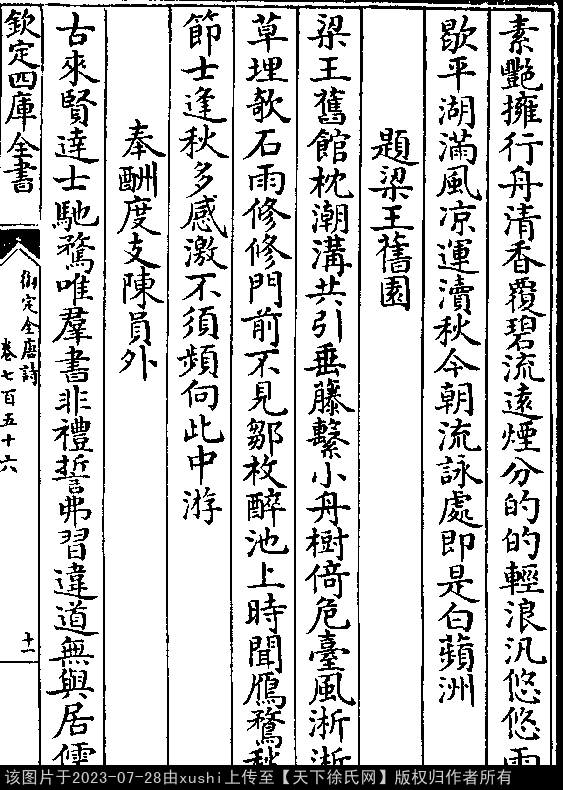 素艷擁行舟清香覆碧流遠煙分的的輕浪汎悠悠雨
歇平湖滿風凉運瀆秋今朝流詠處即是白蘋洲
題梁王舊園
梁王舊館枕潮溝共引垂藤繫小舟樹倚危臺風淅淅
草埋欹石雨修修門前不見鄒枚醉池上時聞鴈鶩秋
節士逢秋多感激不須頻向此中游
奉酬度支陳員外
古來賢達士馳騖唯羣書非禮誓弗習違道無與居儒
欽定四庫全書
御定全唐詩
卷七百五十六
十一
该图片于2023-07-28由xushi上传至【天下徐氏网】版权归作者所有